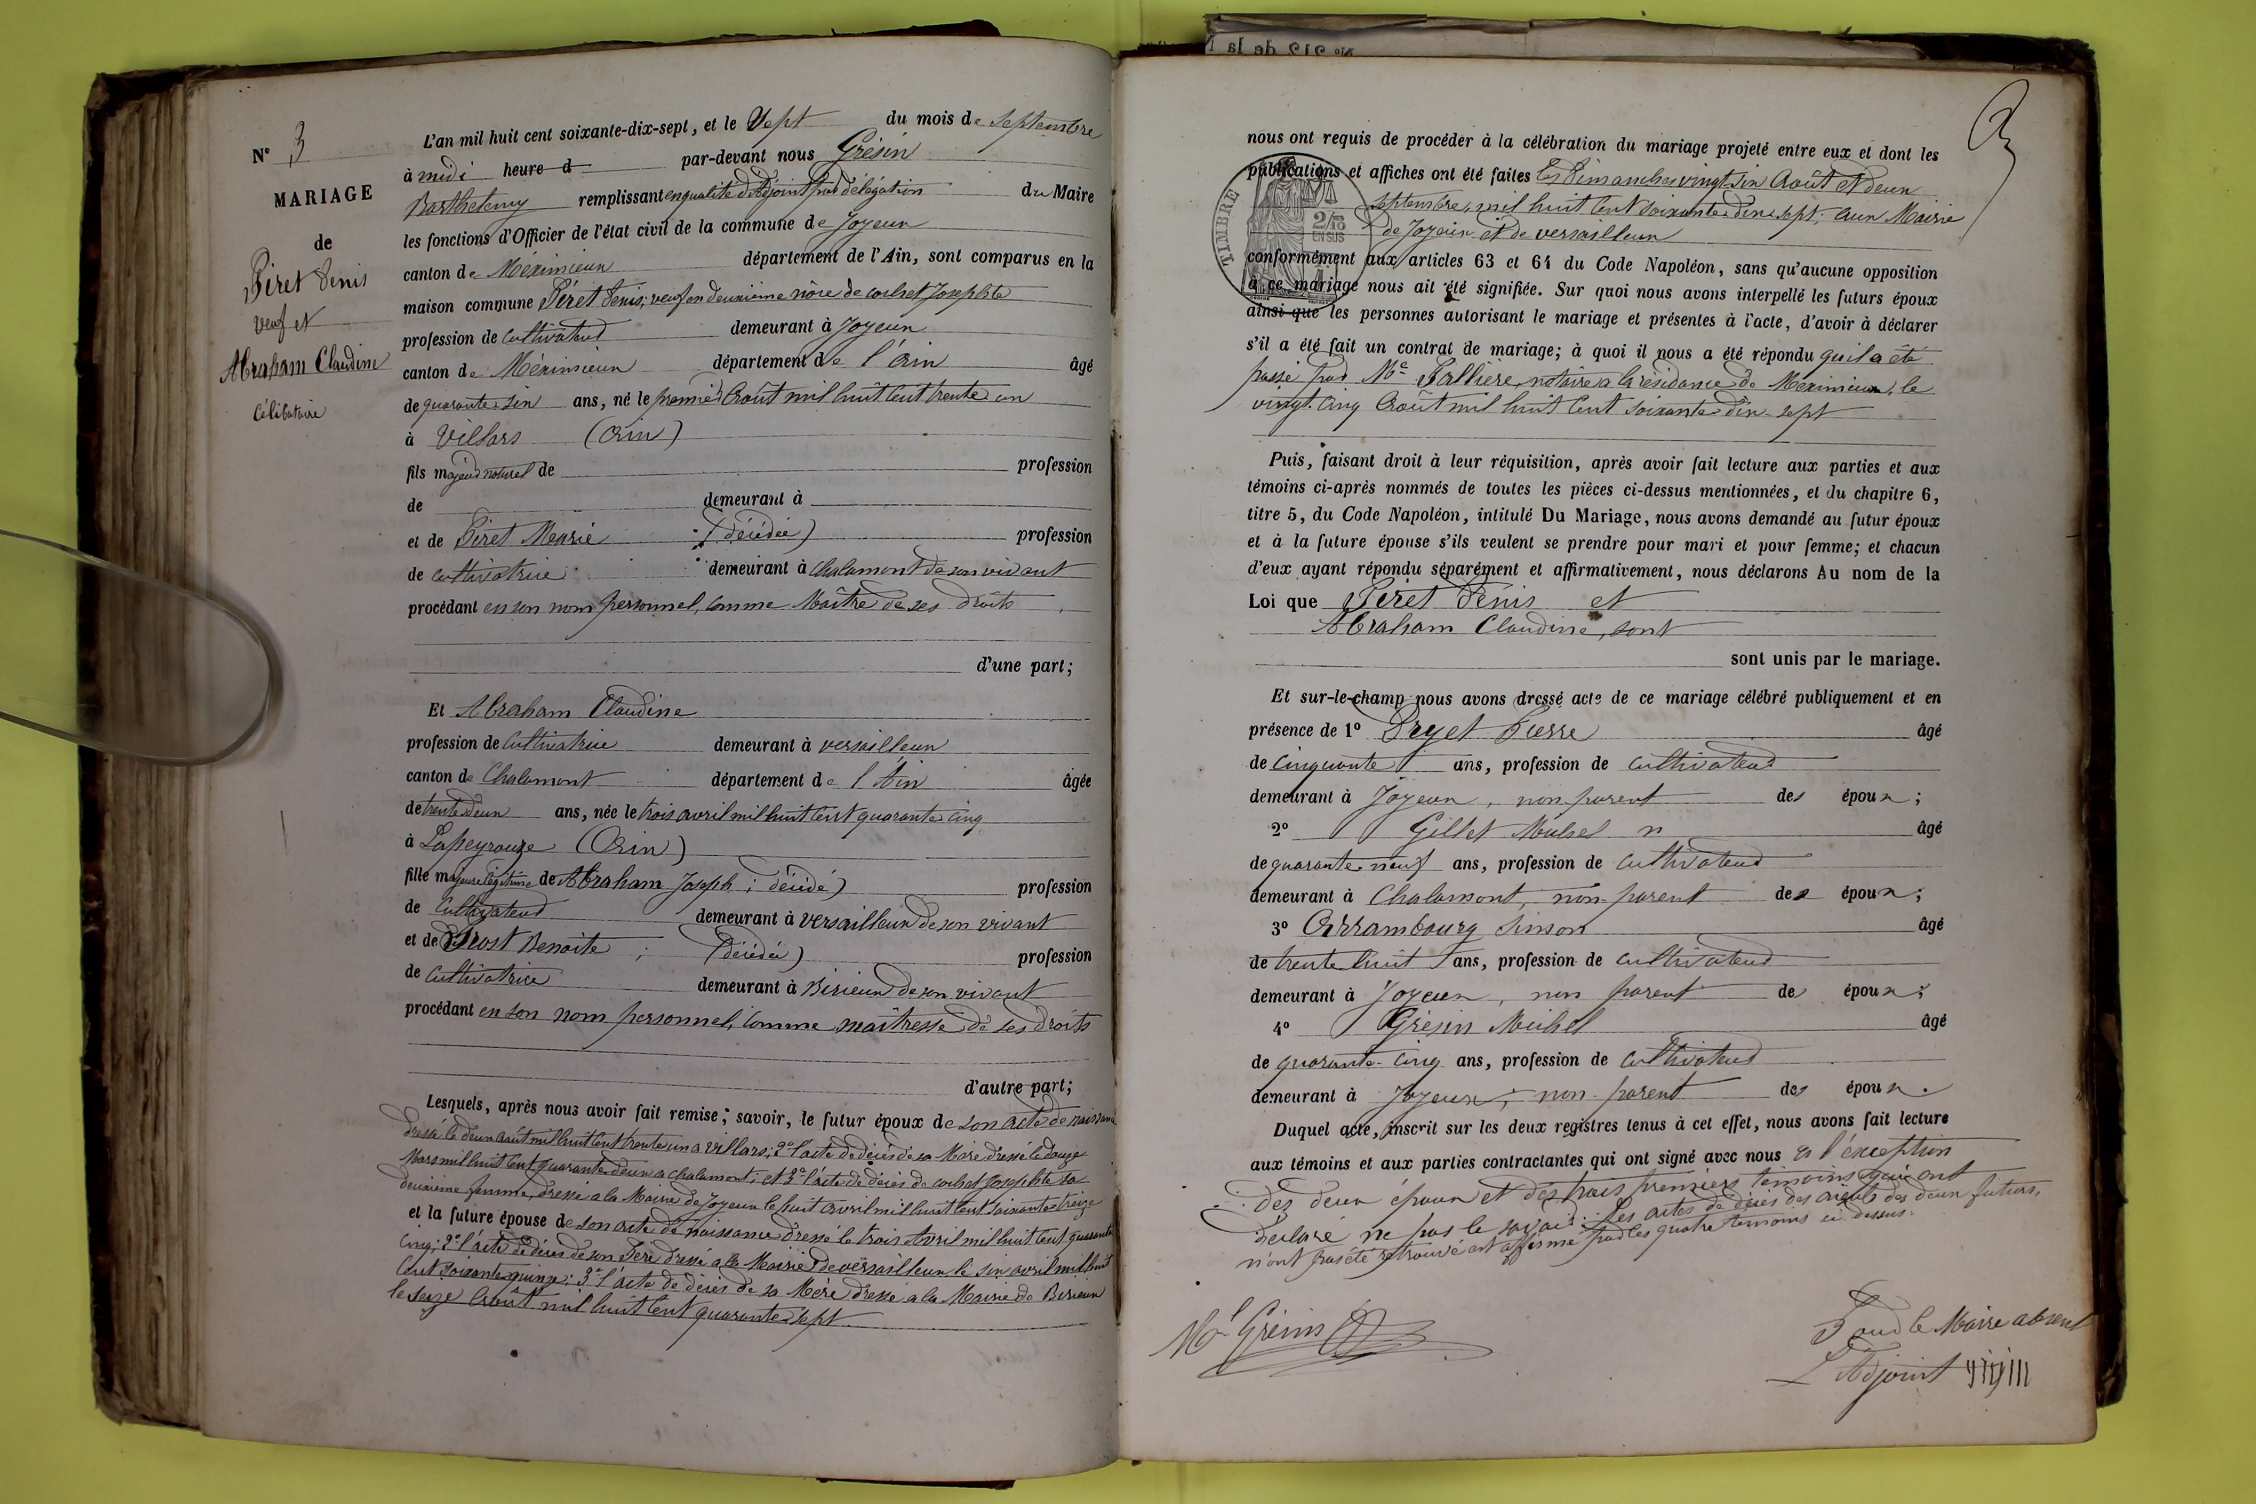 N° 3
MARIAGE
de
Péret Denis
veuf et
Abraham Claudine
célibataire
L'an mil huit cent soixante-dix-sept, et le sept du mois de septembre
à midi heure d par-devant nous Grésin
Barthelemy remplissant en qualité d'Adjoint par délégation du Maire
les fonctions d'Officier de l'état civil de la commune de Joyeux
canton de Méximieux département de l'Ain, sont comparus en la
maison commune Péret Denis; veuf en deuxième noce de corbet Josephte
profession de cultivateur demeurant à Joyeux
canton de Méximieux département de l'Ain âgé
de quarante six ans, né le premier Août mil huit cent trente un
à Villars (Ain)
fils majeur naturel de profession
de demeurant à
et de Péret Marie (décédée) profession
de cultivatrice demeurant à Chalamont de son vivant
procédant en son nom personnel, comme Maître de ses droits
d'une part;
Et Abraham Claudine
profession de cultivatrice demeurant à versailleux
canton de Chalamont département de l'Ain âgée
de trente deux ans, née le trois avril mil huit cent quarante cinq
à Lapeyrouze (Ain)
fille majeure légitime de Abraham Joseph; décédé) profession
de cultivateur demeurant à versailleux de son vivant
et de Prost Benoite; (décédée) profession
de cultivatrice demeurant à Birieux de son vivant
procédant en son nom personnel, comme maîtresse de ses droits
d'autre part;
Lesquels, après nous avoir fait remise; savoir, le futur époux de son acte de naissance
dressé le deux août mil huit cent trente un a villars; 2° l'acte de décès de sa Mère dressé le douze
Mars mil huit cent quarante deux a chalamont; et 3° l'acte de décès de corbet Josephte sa
deuxième femme, dressé a la Mairie de Joyeux le huit avril mil huit cent soixante treize
et la future épouse de son acte de naissance dressé le trois Avril mil huit cent quarante
cinq; 2° l'acte de décès de son Père dressé a la Mairie de versailleux le six avril mil huit
cent soixante quinze; 3° l'acte de décès de sa Mère dressé a la Mairie de Birieux
le seize Août mil huit cent quarante sept
nous ont requis de procéder à la célébration du mariage projeté entre eux et dont les
publications et affiches ont été faites les Dimanches vingt six Août et deux
septembre, mil huit cent soixante dix sept, aux Mairie
de Joyeux et de versailleux
TIMBRE
2/10
EN SUS
conformément aux articles 63 et 64 du Code Napoléon, sans qu'aucune opposition
à ce mariage nous ait été signifiée. Sur quoi nous avons interpellé les futurs époux
ainsi que les personnes autorisant le mariage et présentes à l'acte, d'avoir à déclarer
s'il a été fait un contrat de mariage; à quoi il nous a été répondu qu'il a été
passé par Me Fallière, notaire a la résidance de Meximieux, le
vingt cinq Août mil huit cent soixante dix sept
Puis, faisant droit à leur réquisition, après avoir fait lecture aux parties et aux
témoins ci-après nommés de toutes les pièces ci-dessus mentionnées, et du chapitre 6,
titre 5, du Code Napoléon, intitulé Du Mariage, nous avons demandé au futur époux
et à la future épouse s'ils veulent se prendre pour mari et pour femme; et chacun
d'eux ayant répondu séparément et affirmativement, nous déclarons Au nom de la
Loi que Péret Denis et
Abraham Claudine, sont
sont unis par le mariage.
Et sur-le-champ nous avons dressé acte de ce mariage célébré publiquement et en
présence de 1° Preget Pierre âgé
de cinquante ans, profession de cultivateur
demeurant à Joyeux, non parent des époux;
2° Gillet âgé
de quarante neuf ans, profession de cultivateur
demeurant à Chalamont, non parent des époux;
3° Arrambourg âgé
de trente huit ans, profession de cultivateur
demeurant à Joyeux, non parent des époux;
4° Grésin Michel âgé
de quarante-cinq ans, profession de cultivateur
demeurant à Joyeux, non parent des époux.
Duquel acte, inscrit sur les deux registres tenus à cet effet, nous avons fait lecture
aux témoins et aux parties contractantes qui ont signé avec nous a l'exception
des deux époux et des trois premiers témoins qui ont
déclaré ne pas le savoir. Les actes de décès des aïeuls des deux futurs,
n'ont pas été retrouvé est affirmé par les quatre témoins ci dessus.
Mel Grésin
Pour le Maire absent
L'Adjoint